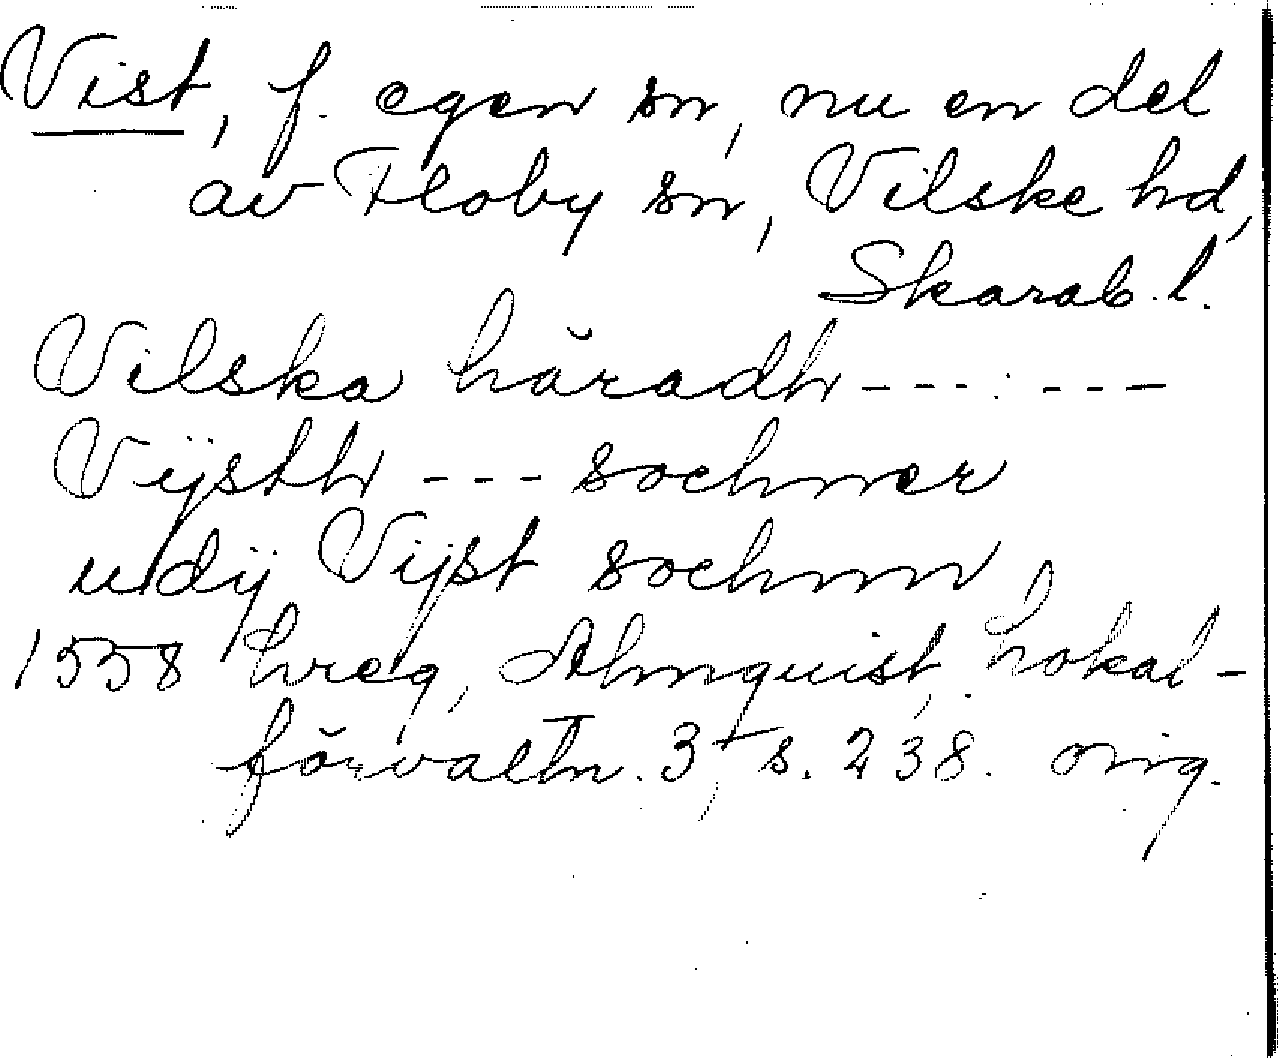 Vist, f. egen sn, nu en del
av Floby sn, Vilske hd,
Skarab. l.
Vilska häradh --- : ---
Vijsth --- sochner
udij Vijst sochnn,
1558 hreg, Almquist, Lokal-
förvaltn. 3, s. 238. orig.